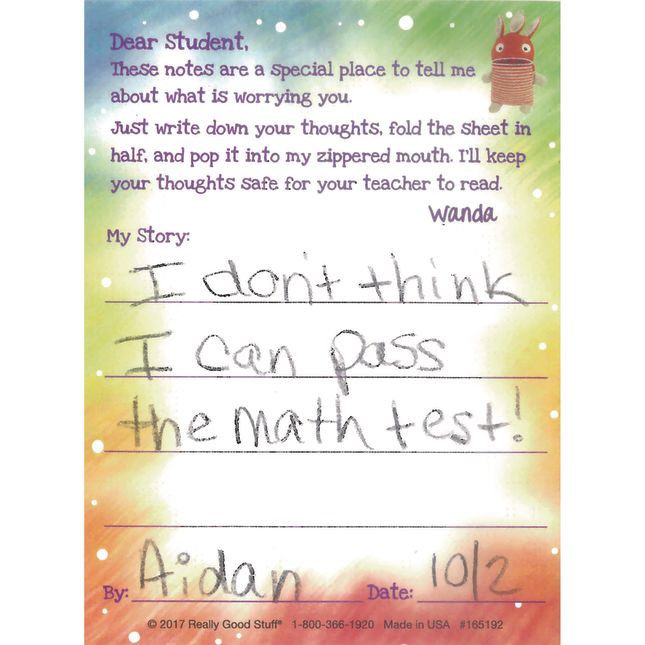 Dear Student,
These notes are a special place to tell me
about what is worrying you.
Just write down your thoughts, fold the sheet in
half, and pop it into my zippered mouth. I'll keep
your thoughts safe for your teacher to read.
Wanda
My Story:
I don't think
I can pass
the math test!
By: Aidan Date: 10/2
© 2017 Really Good Stuff® 1-800-366-1920 Made in USA #165192